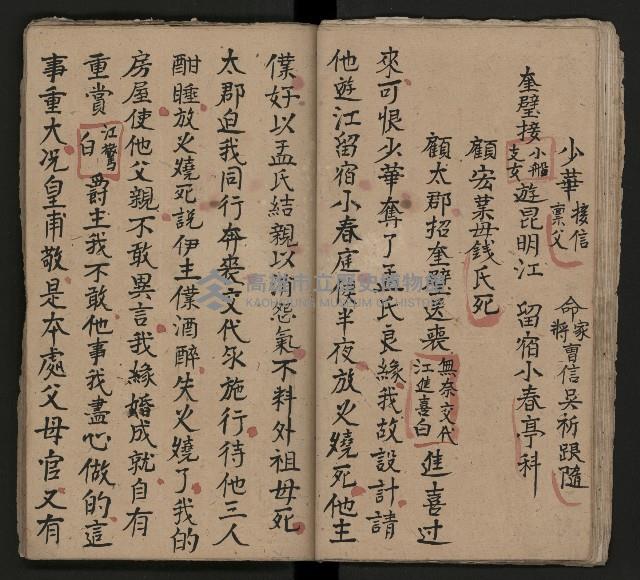 少華接信稟父　命家將曹信吳祈跟隨
奎璧接小船支女遊昆明江　留宿小春亭科
顧宏業母錢氏死
顧太郡招奎璧送喪無奈交代江進喜白進喜过
來可恨少華奪了孟氏良緣我故設計請
他遊江留宿小春庭候半夜放火燒死他主
僕好以孟氏結親以消怨氣不料外祖母死
太郡迫我同行奔喪交代永施行待他三人
酣睡放火燒死説伊主僕酒醉失火燒了我的
房屋使他父親不敢異言我緣婚成就自有
重賞江驚白爵主我不敢他事我盡心做的這
事重大况皇甫敬是本處父母官又有
高雄市立歷史博物館
KAOHSIUNG MUSEUM OF HISTORY